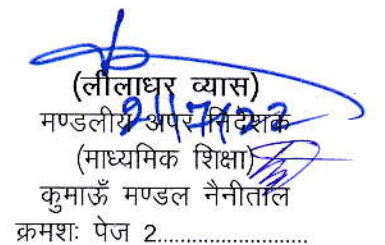 (लीलाधर व्यास)
21/7/22
मण्डलीय अपर निदेशक
(माध्यमिक शिक्षा)
कुमाऊँ मण्डल नैनीताल
क्रमशः पेज 2..........................